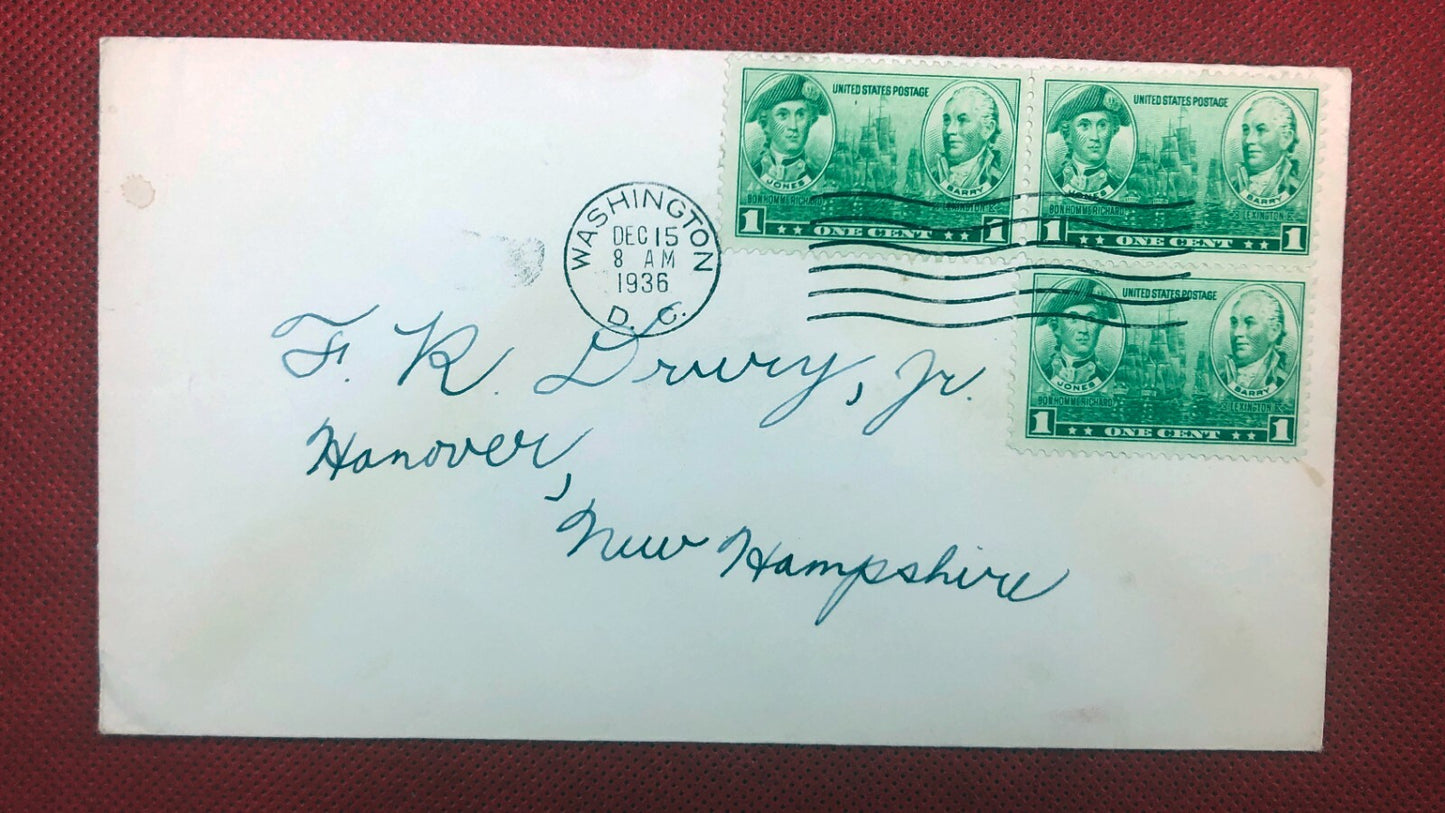 UNITED STATES POSTAGE
JONES
BARRY
BONHOMME RICHARD
LEXINGTON
1 ONE CENT 1
UNITED STATES POSTAGE
JONES
BARRY
BONHOMME RICHARD
LEXINGTON
1 ONE CENT 1
WASHINGTON
DEC 15
8 AM
1936
D. C.
UNITED STATES POSTAGE
JONES
BARRY
BONHOMME RICHARD
LEXINGTON
1 ONE CENT 1
F. R. Drury, Jr.
Hanover,
New Hampshire